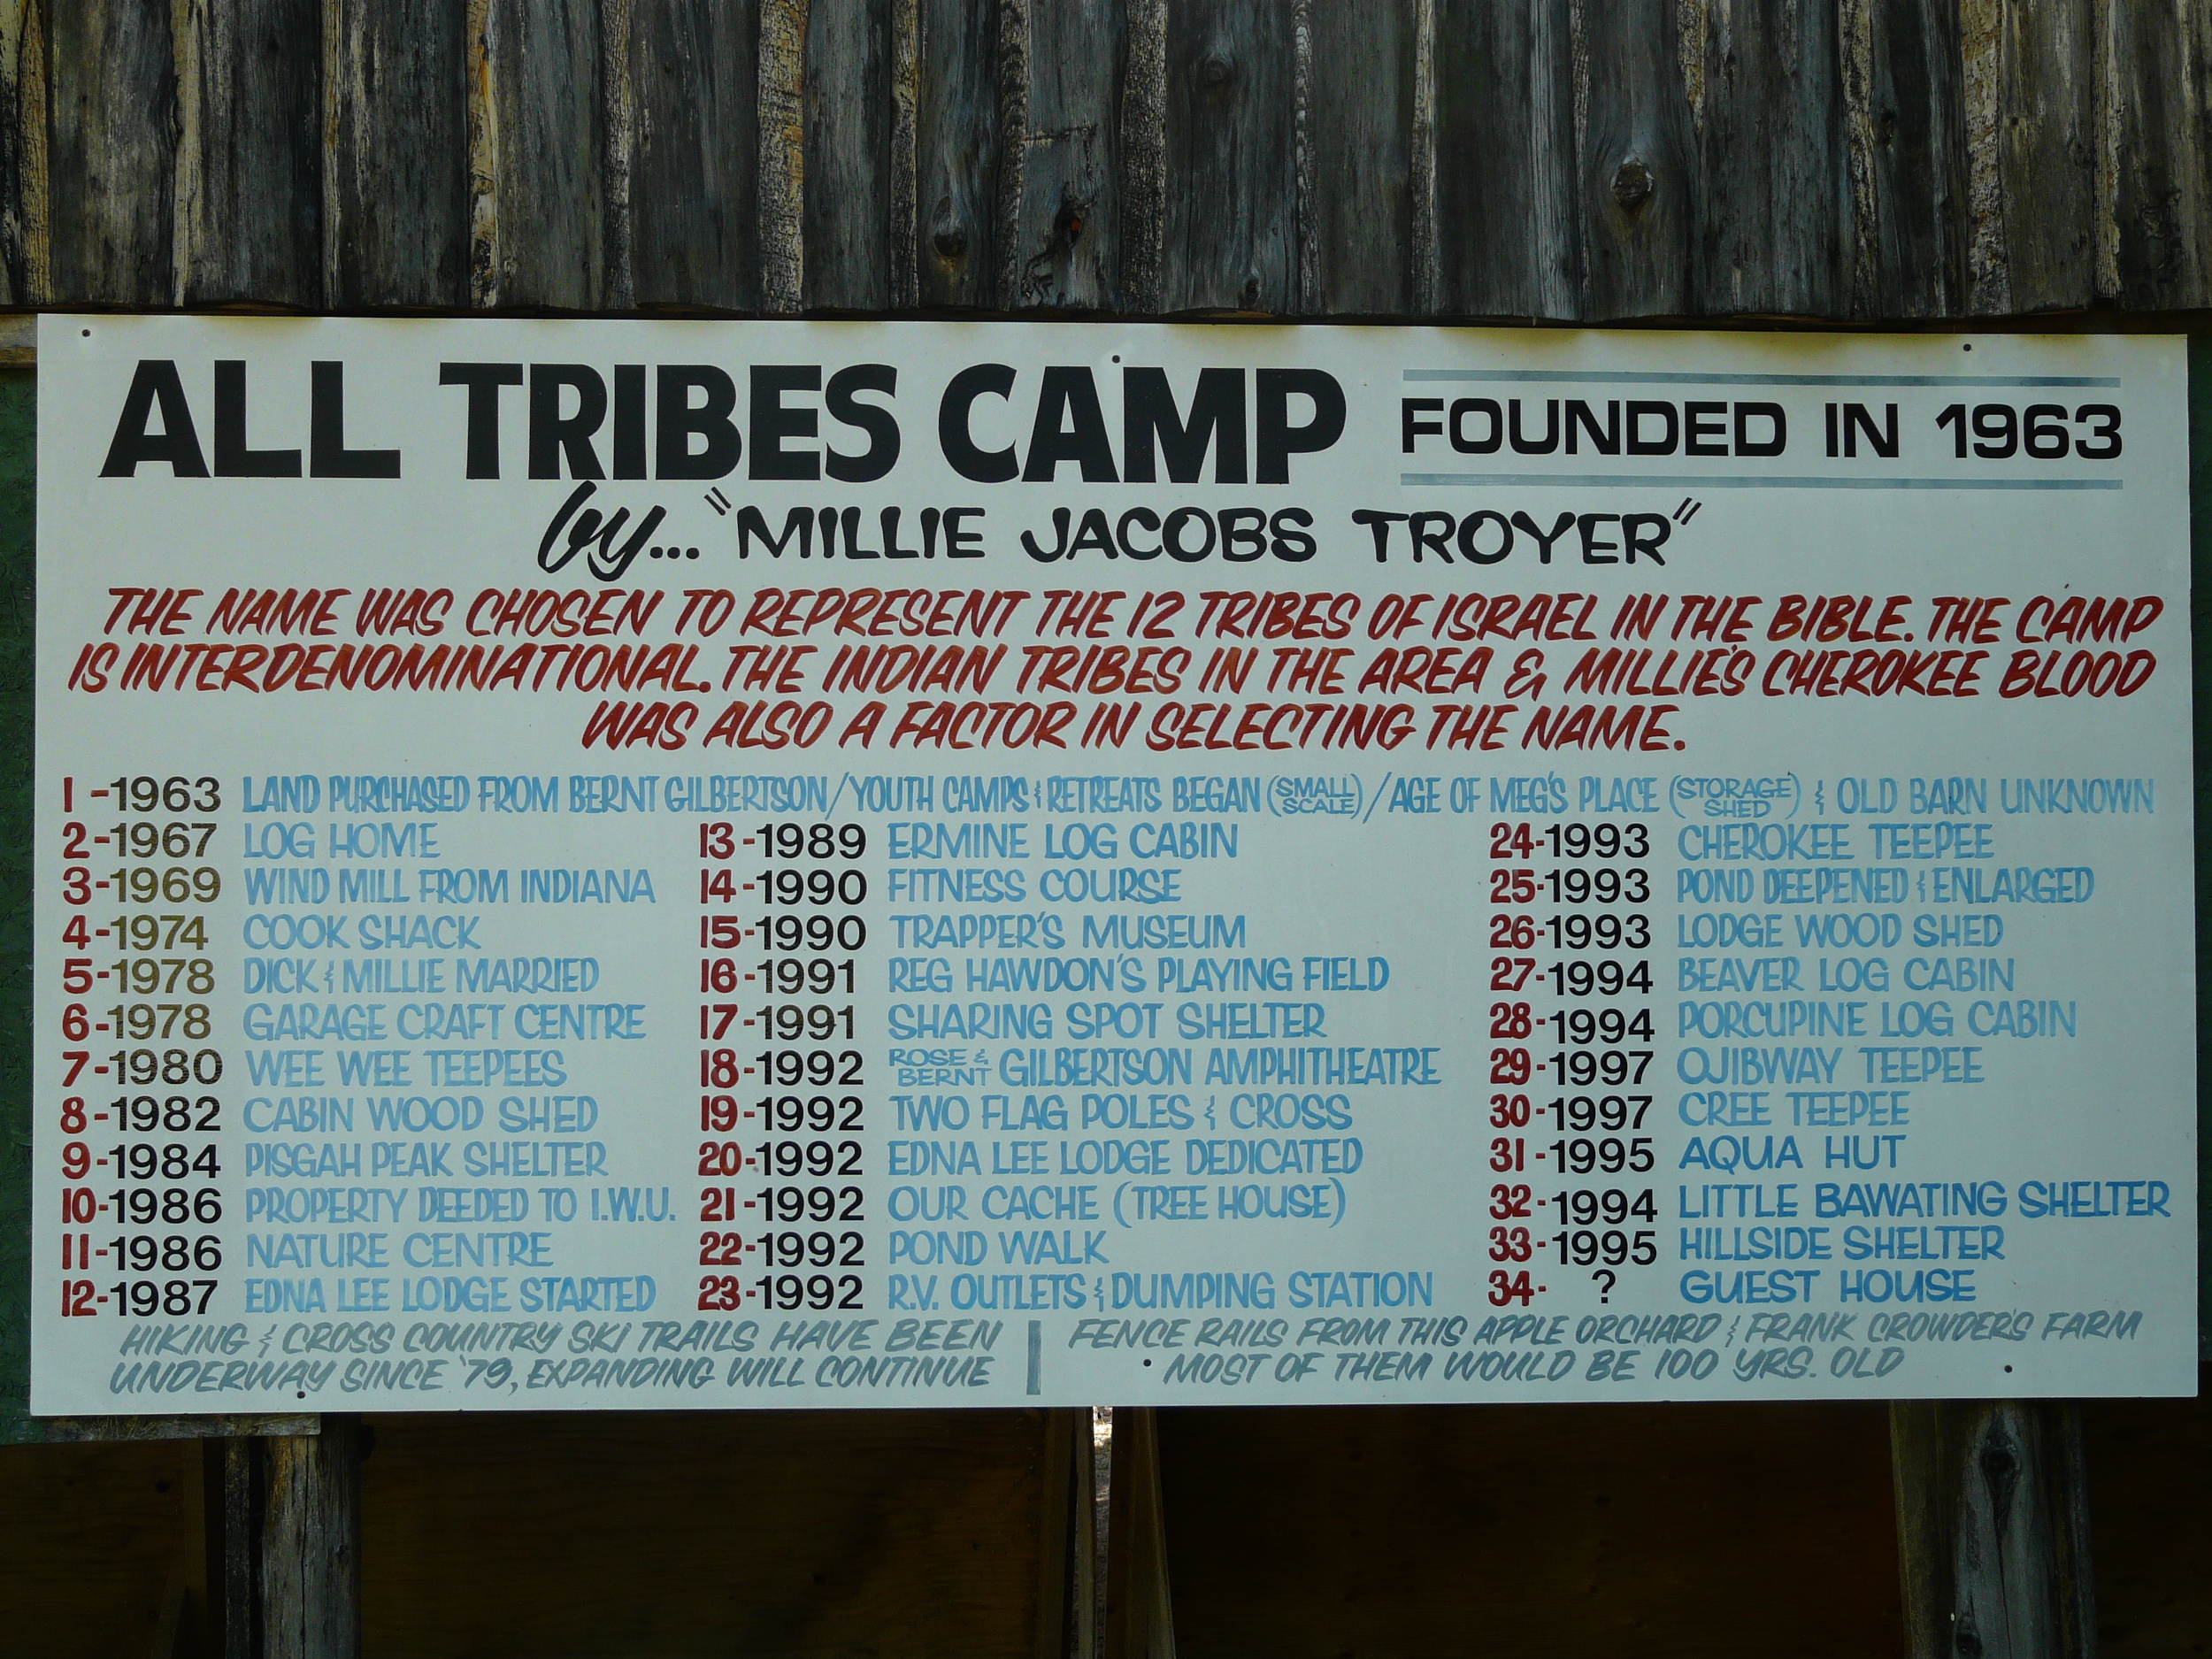 ALL TRIBES CAMP FOUNDED IN 1963
by... "MILLIE JACOBS TROYER"
THE NAME WAS CHOSEN TO REPRESENT THE 12 TRIBES OF ISRAEL IN THE BIBLE. THE CAMP
IS INTERDENOMINATIONAL. THE INDIAN TRIBES IN THE AREA & MILLIE'S CHEROKEE BLOOD
WAS ALSO A FACTOR IN SELECTING THE NAME.
1-1963 LAND PURCHASED FROM BERNT GILBERTSON/YOUTH CAMPS & RETREATS BEGAN (SMALL SCALE)/AGE OF MEG'S PLACE (STORAGE SHED) & OLD BARN UNKNOWN
2-1967 LOG HOME
3-1969 WIND MILL FROM INDIANA
4-1974 COOK SHACK
5-1978 DICK & MILLIE MARRIED
6-1978 GARAGE CRAFT CENTRE
7-1980 WEE WEE TEEPEES
8-1982 CABIN WOOD SHED
9-1984 PISGAH PEAK SHELTER
10-1986 PROPERTY DEEDED TO I.W.U.
11-1986 NATURE CENTRE
12-1987 EDNA LEE LODGE STARTED
13-1989 ERMINE LOG CABIN
14-1990 FITNESS COURSE
15-1990 TRAPPER'S MUSEUM
16-1991 REG HAWDON'S PLAYING FIELD
17-1991 SHARING SPOT SHELTER
18-1992 ROSE & BERNT GILBERTSON AMPHITHEATRE
19-1992 TWO FLAG POLES & CROSS
20-1992 EDNA LEE LODGE DEDICATED
21-1992 OUR CACHE (TREE HOUSE)
22-1992 POND WALK
23-1992 R.V. OUTLETS & DUMPING STATION
24-1993 CHEROKEE TEEPEE
25-1993 POND DEEPENED & ENLARGED
26-1993 LODGE WOOD SHED
27-1994 BEAVER LOG CABIN
28-1994 PORCUPINE LOG CABIN
29-1997 OJIBWAY TEEPEE
30-1997 CREE TEEPEE
31-1995 AQUA HUT
32-1994 LITTLE BAWATING SHELTER
33-1995 HILLSIDE SHELTER
34- ? GUEST HOUSE
HIKING & CROSS COUNTRY SKI TRAILS HAVE BEEN
UNDERWAY SINCE '79, EXPANDING WILL CONTINUE
FENCE RAILS FROM THIS APPLE ORCHARD & FRANK CROWDER'S FARM
MOST OF THEM WOULD BE 100 YRS. OLD